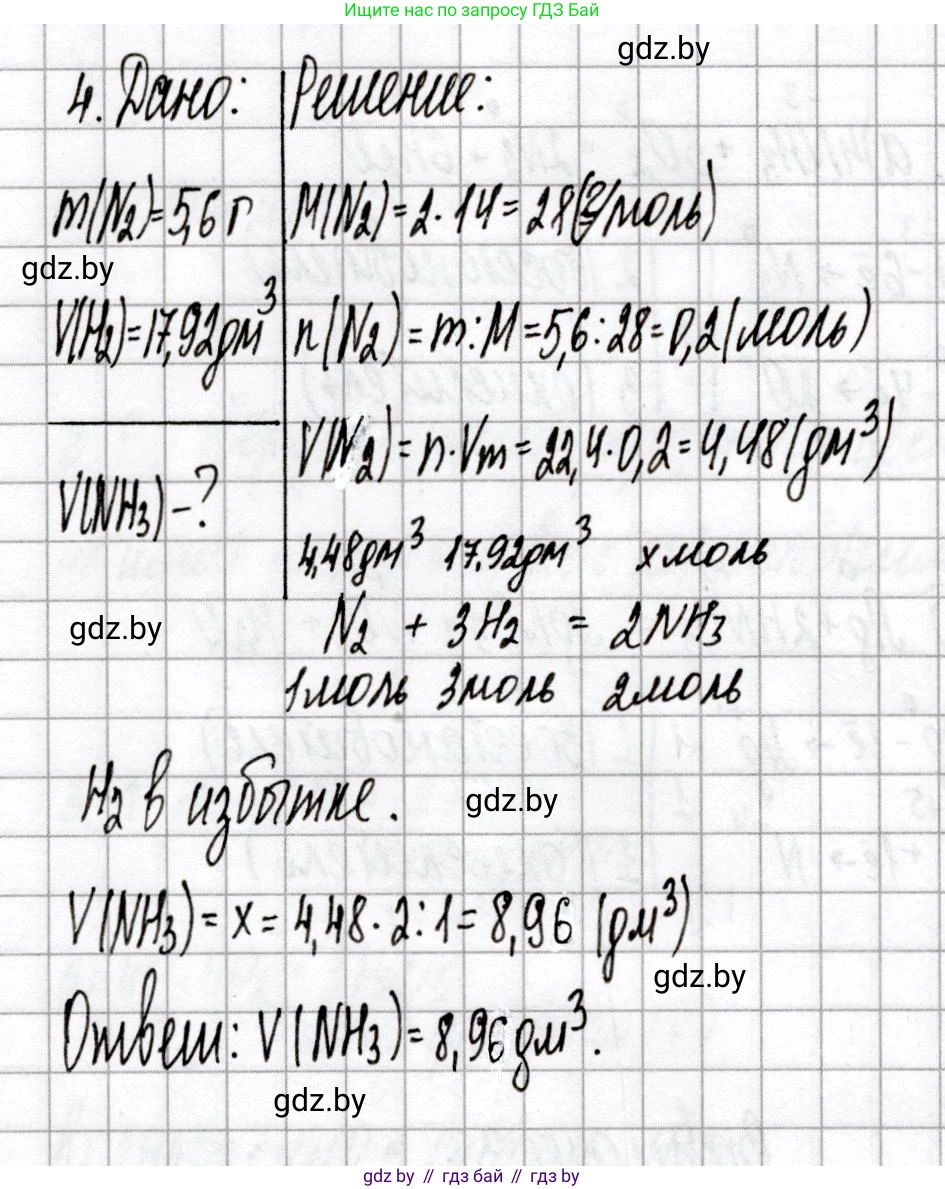 Ищите нас по запросу ГДЗ Бай
gdz.by
4. Дано: Решение:
m(N₂)=5,6 г M(N₂)=2·14=28(г/моль)
gdz.by
V(H₂)=17,92дм³ n(N₂)=m:M=5,6:28=0,2(моль)
V(N₂)=n·Vm=22,4·0,2=4,48(дм³)
V(NH₃)-?
4,48дм³ 17,92дм³ x моль
gdz.by
N₂ + 3H₂ = 2NH₃
1моль 3моль 2моль
H₂ в избытке.
gdz.by
V(NH₃)=x=4,48·2:1=8,96 (дм³)
gdz.by
Ответ: V(NH₃)=8,96дм³.
gdz.by
gdz by // гдз бай // gdz by